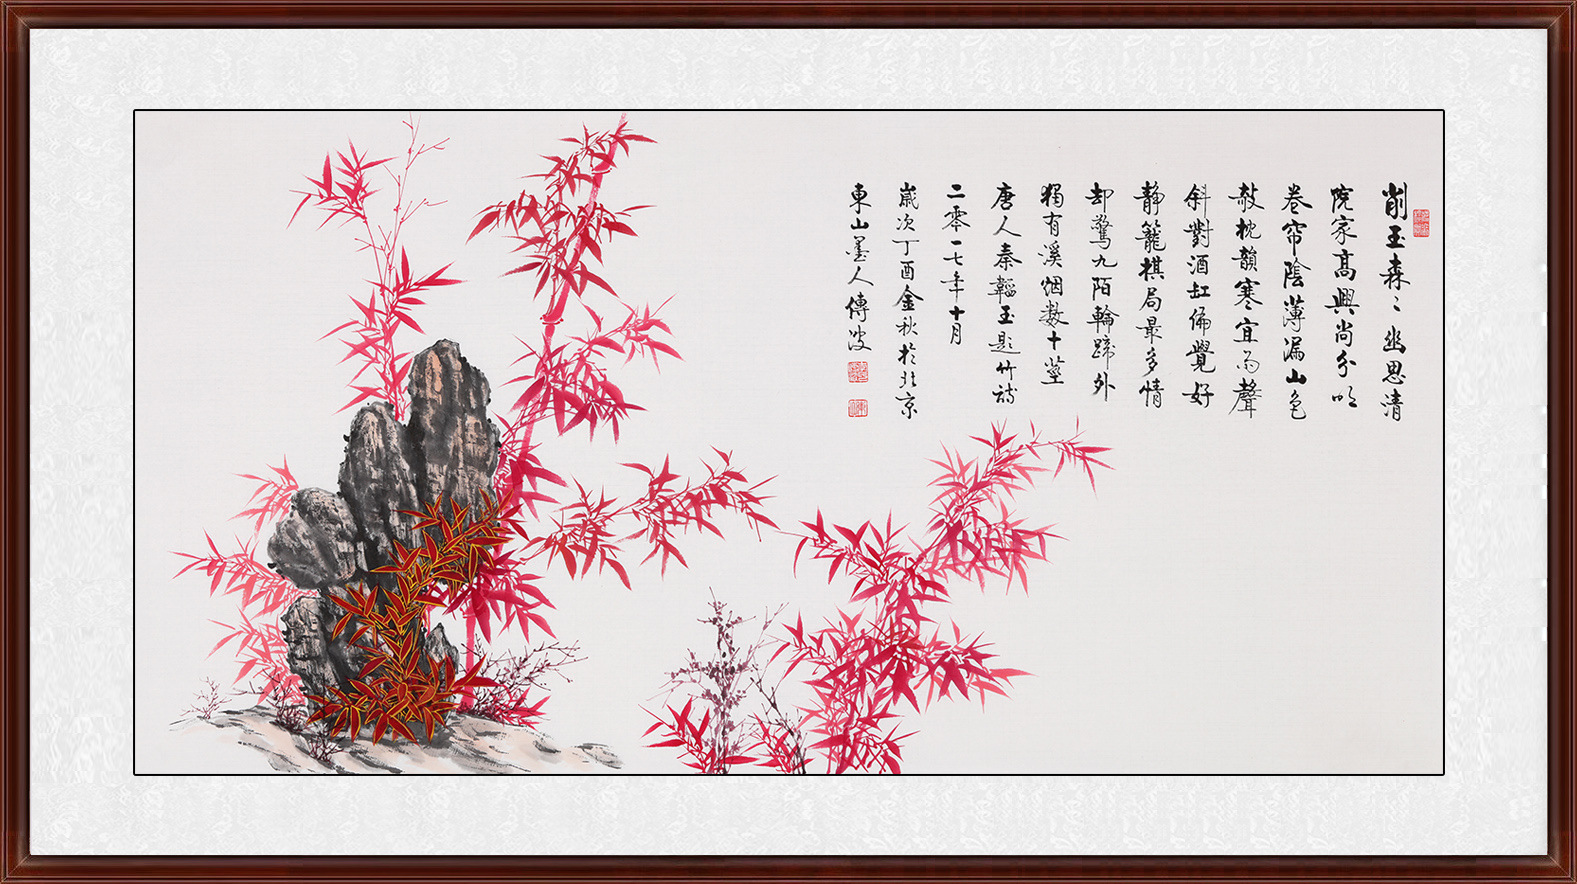 削玉森〻幽思清
院家高興尚分明
卷帘陰薄漏山色
敧枕韻寒宜雨聲
斜對酒缸偏覺好
静籠棋局最多情
却驚九陌輪蹄外
獨有溪烟数十莖
唐人秦韜玉題竹诗
二零一七年十月
嵗次丁酉金秋於北京
東山墨人傳波